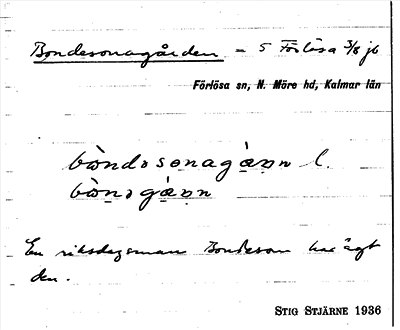 Bondesonagården = 5 Förlösa 3/8 jb
Förlösa sn, N. Möre hd, Kalmar län
bòndəsənagàṇ l.
bòṇəgàṇ
En riksdagsman Bondeson har ägt
den.
STIG STJÄRNE 1936